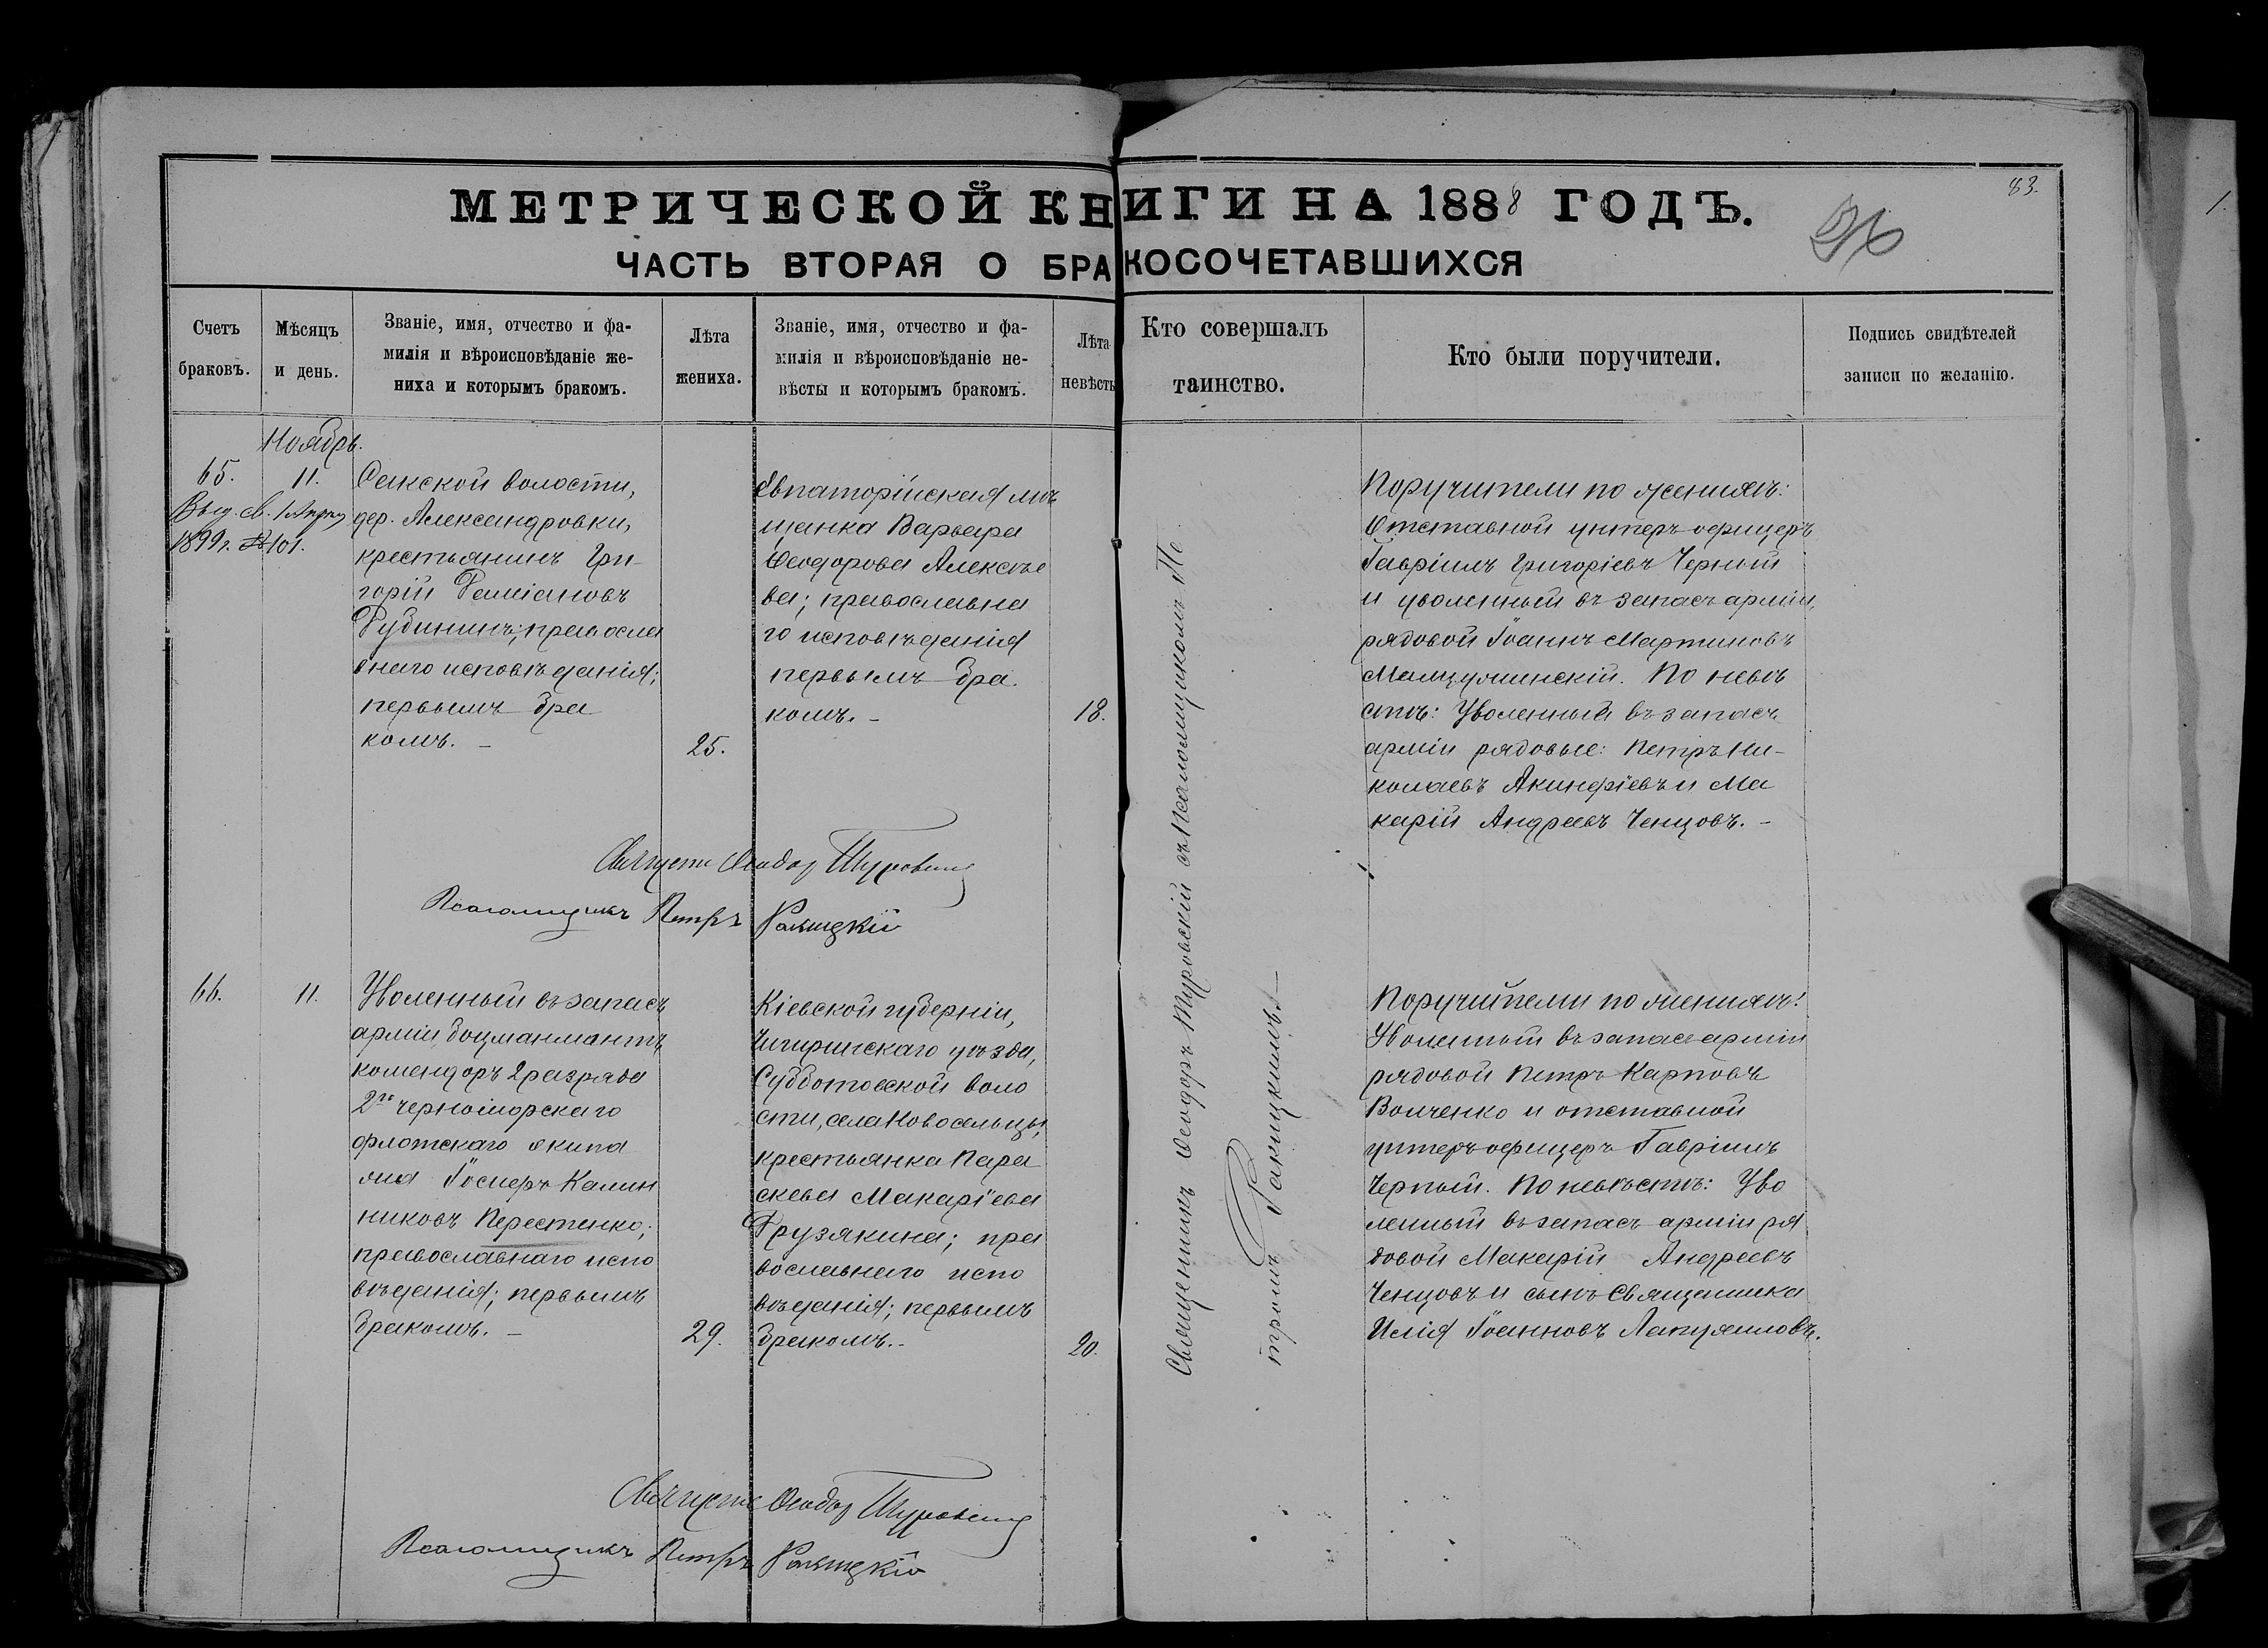 МЕТРИЧЕСКОЙ КНИГИ НА 1888 ГОДЪ.
83.
1.
ЧАСТЬ ВТОРАЯ О БРАКОСОЧЕТАВШИХСЯ
Счетъ
браковъ.
Мѣсяцъ
и день.
Званіе, имя, отчество и фа-
милія и вѣроисповѣданіе же-
ниха и которымъ бракомъ.
Лѣта
жениха.
Званіе, имя, отчество и фа-
милія и вѣроисповѣданіе не-
вѣсты и которымъ бракомъ.
Лѣта
невѣсты
Кто совершалъ
таинство.
Кто были поручители.
Подпись свидѣтелей
записи по желанію.
Ноябрь.
65.
Выд. св. 1 Апрѣл
1899г. № 101.
11.
Сакской волости,
дер. Александровки,
крестьянинъ Гри-
горій
Рубининъ; правосла
внаго исповѣданія;
первымъ бра
комъ. -
25.
Евпаторійская мѣ
щанка Варвара
Ѳеодорова Алексѣе
ва; православна
го исповѣданія
первымъ бра
комъ. -
18.
Поручители по женихѣ:
Отставной унтеръ-офицеръ
Гавріилъ Григоріевъ Черный
и уволенный въ запасъ арміи,
рядовой Іоаннъ Мартиновъ
По невѣ
стѣ: Уволенные въ запасъ
арміи рядовые: Петръ Ни-
колаевъ Акинфіевъ и Ма
карій Андреевъ Ченцовъ. -
Священникъ Ѳеодоръ Туровскій съ Псаломщикомъ Пе
тромъ Ракицкимъ. -
Священн Ѳеодор Туровскій
Псаломщикъ Петръ Ракицкій
66.
11.
Уволенный въ запасъ
арміи, боцманматъ,
комендоръ 2 разряда
2го черноморскаго
флотскаго экипа
жа Іосифъ Калин
никовъ Перестенко;
православнаго испо
вѣданія; первымъ
бракомъ. -
29.
Кіевской губерніи,
Чигиринскаго уѣзда,
Субботовской воло
сти, села Новосельцы,
крестьянка Пара
скева Макаріева
Грузякина; пра
вославнаго испо
вѣданія; первымъ
бракомъ. -
20.
Поручители по женихѣ:
Уволенный въ запасъ арміи
рядовой Петръ Карповъ
Волченко и отставной
унтеръ-офицеръ Гавріилъ
Черный. По невѣстѣ: Уво
ленный въ запасъ арміи ря
довой Макарій Андреевъ
Ченцовъ и сынъ Священника
Илія Іоанновъ
Священн Ѳеодор Туровскій
Псаломщикъ Петръ Ракицкій